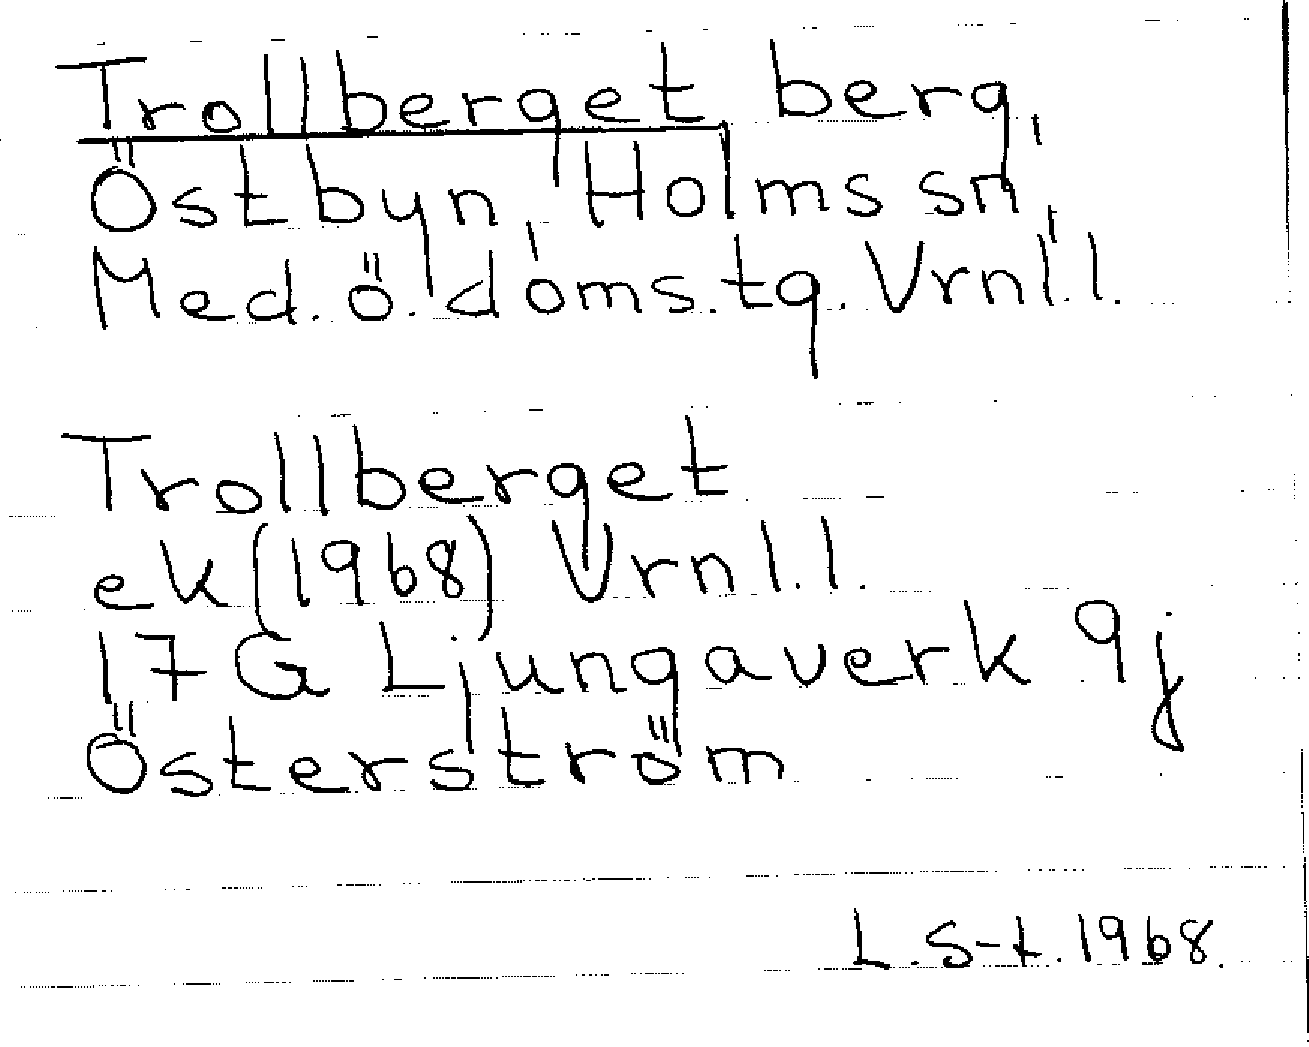 Trollberget berg,
Östbyn, Holms sn,
Med. ö. doms. tg. Vrnl. l.
Trollberget
ek (1968) Vrnl. l.
17 G Ljungaverk 9j
Österström
L. S-t. 1968.